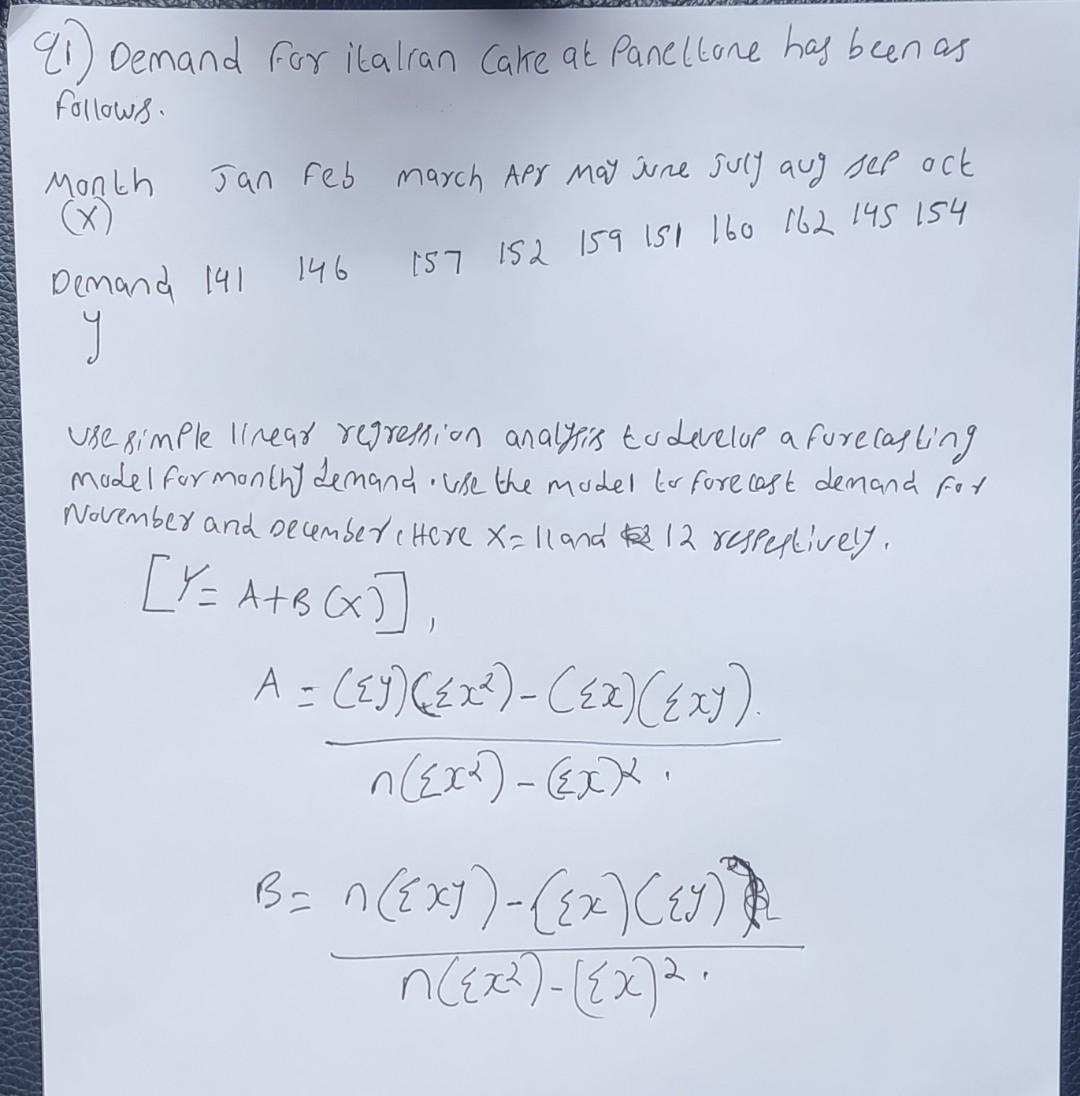 Q1) Demand For italian Cake at Panettone has been as
follows.
Month Jan Feb march Apr May june july aug sep oct
(X)
Demand 141 146 157 152 159 151 160 162 145 154
y
use simple linear regression analysis to develop a forecasting
model for monthly demand. use the model to forecast demand for
November and December. Here X=11 and 12 respectively.
[Y= A+B(X)],
A = (Σy)(Σx²)-(Σx)(Σxy).
n(Σx²)-(Σx)².
B= n(Σxy)-(Σx)(Σy)
n(Σx²)-(Σx)².